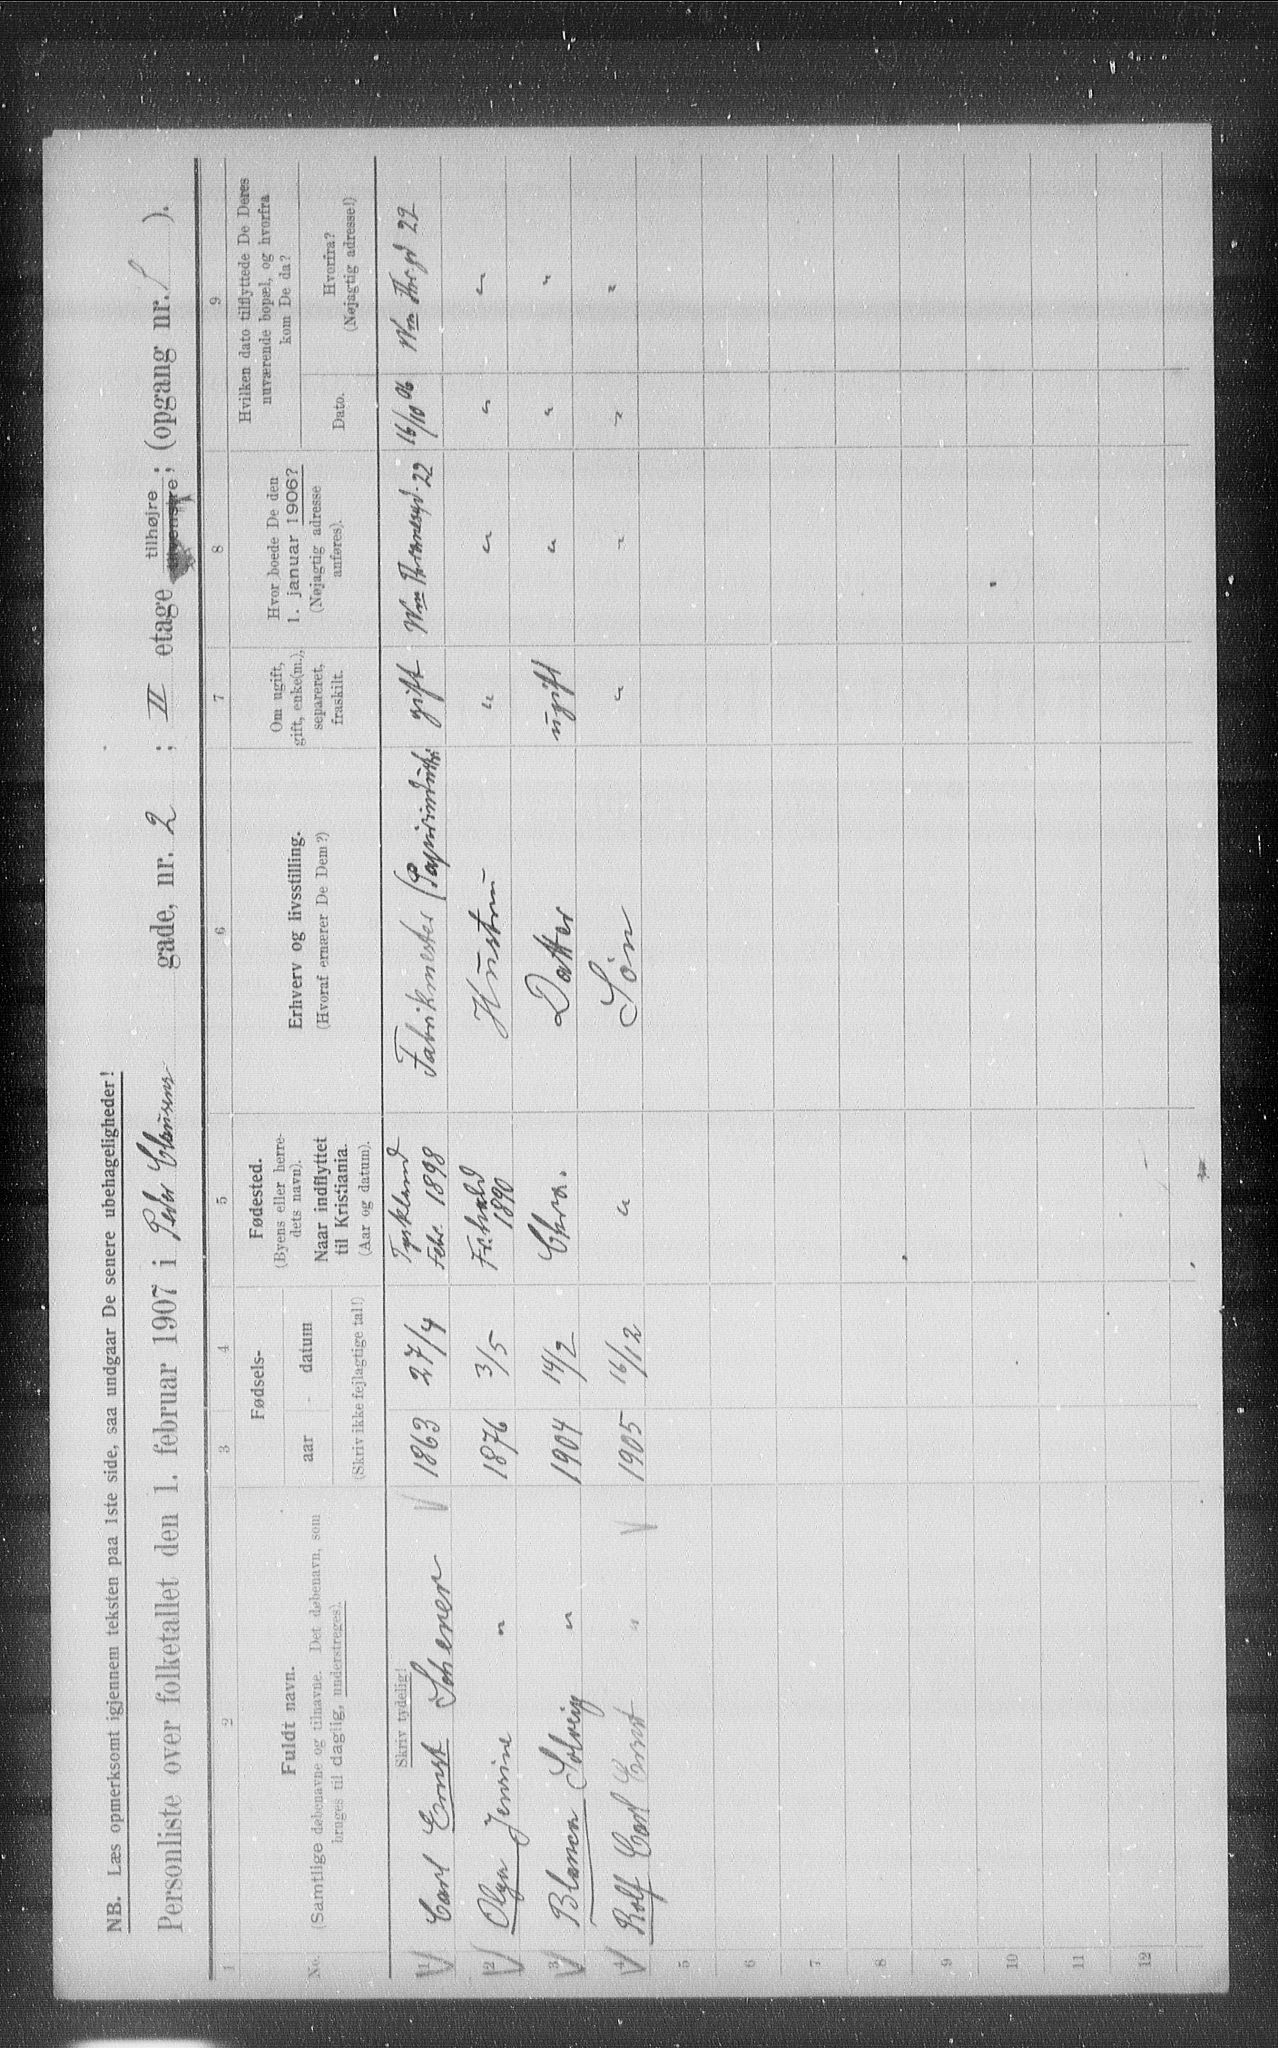 NB. Læs opmerksomt igjennem teksten paa 1ste side, saa undgaar De senere ubehageligheder!
Personliste over folketallet den 1. februar 1907 i Peder Clausens gade, nr. 2 ; II etage tilhøjre ; (opgang nr. ).
1 2 3 4 5 6 7 8 9
No.
Fuldt navn.
(Samtlige døbenavne og tilnavne. Det døbenavn, som
bruges til daglig, understreges).
Fødsels-
aar - datum
(Skriv ikke fejlagtige tal!)
Fødested.
(Byens eller herre-
dets navn).
Naar indflyttet
til Kristiania.
(Aar og datum).
Erhverv og livsstilling.
(Hvoraf ernærer De Dem?)
Om ugift,
gift, enke(m.),
separeret,
fraskilt.
Hvor boede De den
1. januar 1906?
(Nøjagtig adresse
anføres).
Hvilken dato tilflyttede De Deres
nuværende bopæl, og hvorfra
kom De da?
Dato.
Hvorfra?
(Nøjagtig adresse!)
Skriv tydelig!
1 Carl Ernst Scherer 1863 27/4 Tyskland Febr. 1898 Fabrikmester gift 22 16/10 06 22
2 Olga Jensine " 1876 3/5 Fr.hald 1890 Hustru " " " "
3 Blanca Solveig " 1904 14/2 Chra. Datter ugift " " "
4 Rolf Carl Ernst " 1905 16/12 " Søn " " " "
5
6
7
8
9
10
11
12